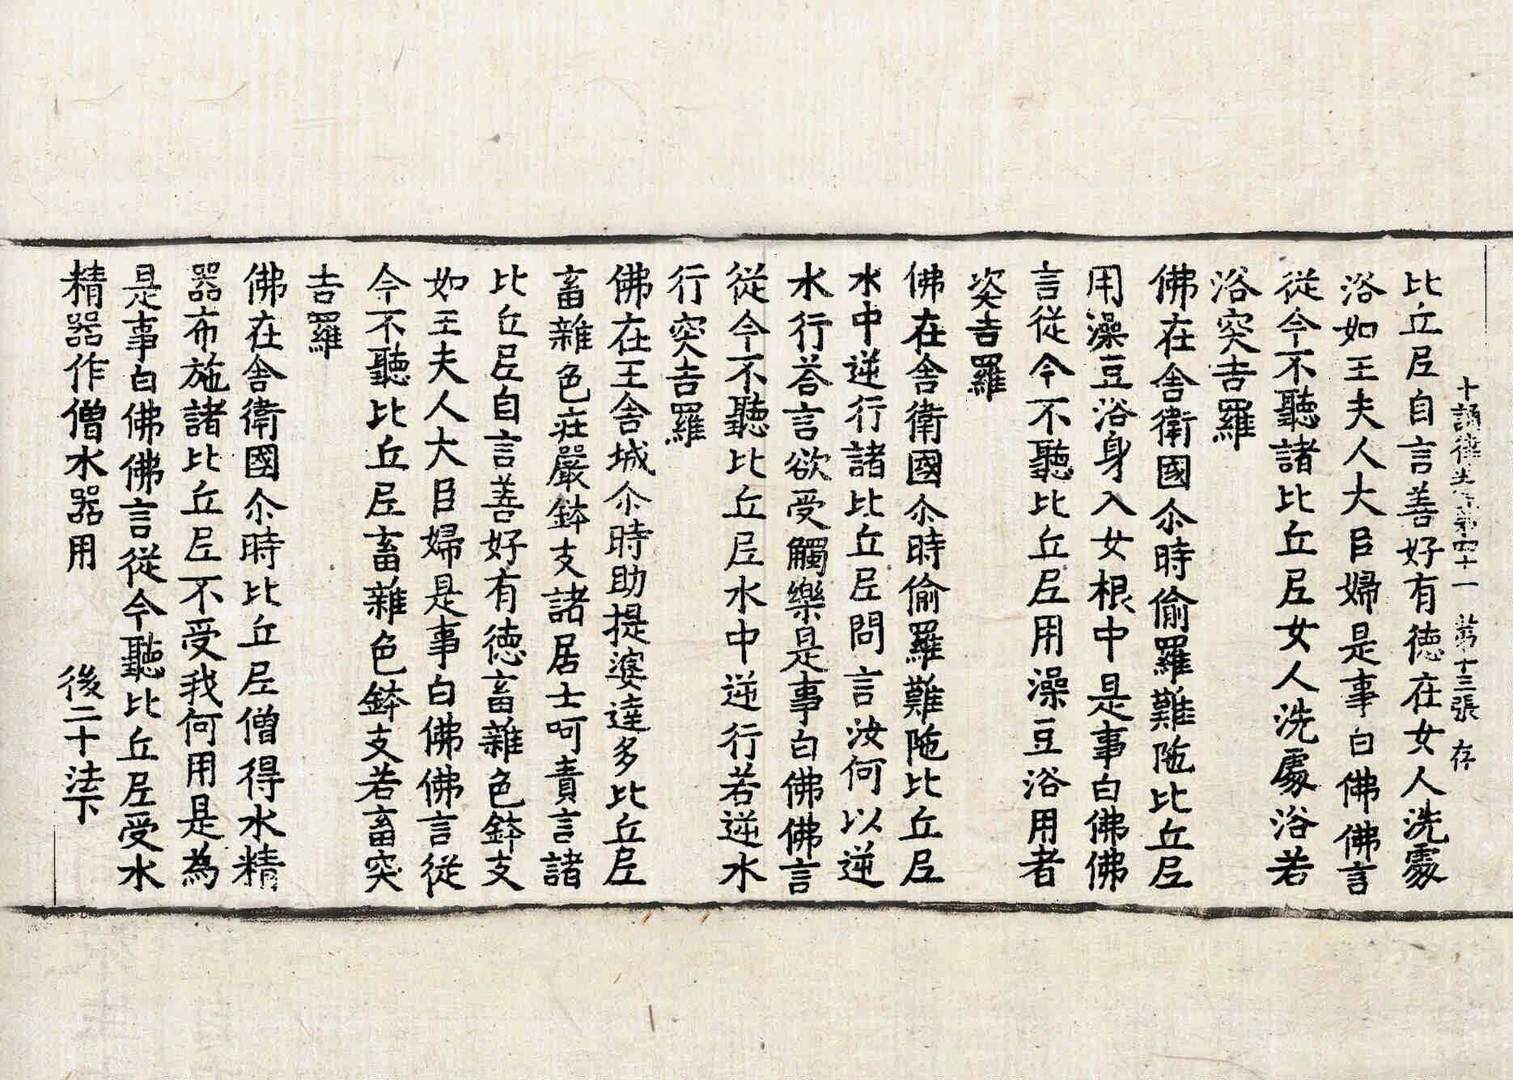 十誦律 第四十一 第十三張 存
比丘尼自言善好有德在女人洗處
浴如王夫人大臣婦是事白佛佛言
從今不聽諸比丘尼女人洗處浴若
浴突吉羅
佛在舍衛國尒時偷羅難陁比丘尼
用澡豆浴身入女根中是事白佛佛
言從今不聽比丘尼用澡豆浴用者
突吉羅
佛在舍衛國尒時偷羅難陁比丘尼
水中逆行諸比丘尼問言汝何以逆
水行荅言欲受觸樂是事白佛佛言
從今不聽比丘尼水中逆行若逆水
行突吉羅
佛在王舍城尒時助提婆達多比丘尼
畜雜色莊嚴鉢支諸居士呵責言諸
比丘尼自言善好有德畜雜色鉢支
如王夫人大臣婦是事白佛佛言從
今不聽比丘尼畜雜色鉢支若畜突
吉羅
佛在舍衛國尒時比丘尼僧得水精
器布施諸比丘尼不受我何用是為
是事白佛佛言從今聽比丘尼受水
精器作僧水器用 後二十法下